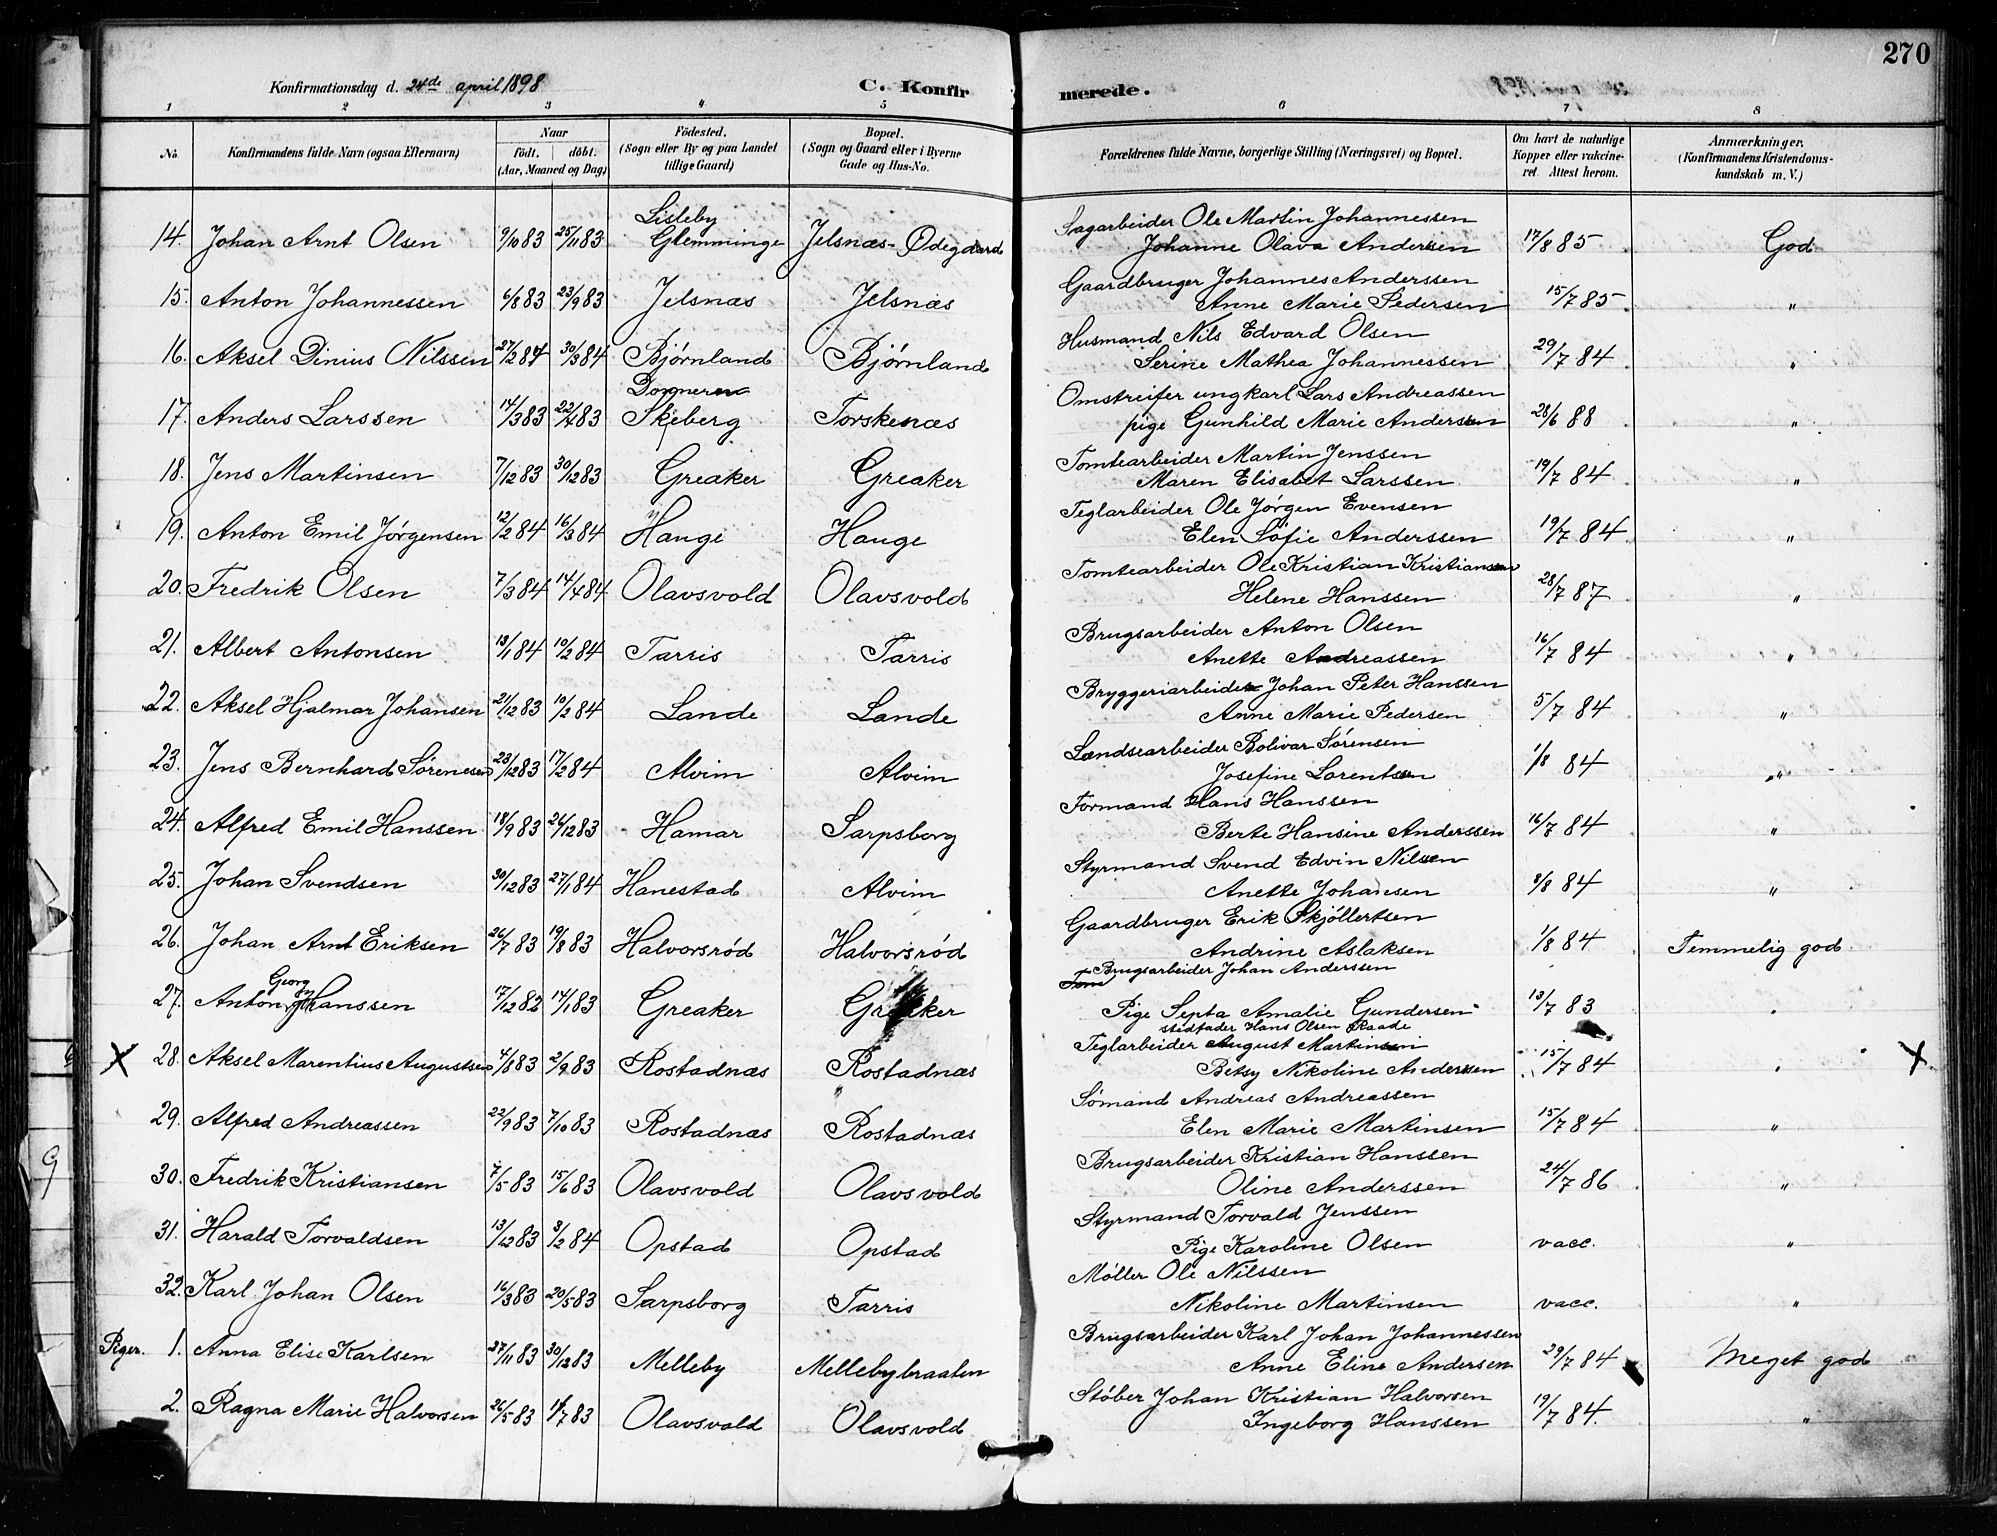 270
Konfirmationsdag d. 24de april 1898 C. Konfirmerede.
1 2 3 " 5 6 7 8
No. Konfirmandens fulde Navn (ogsaa Efternavn) Naar født, døbt. (Aar, Maaned og Dag) Fødested. (Sogn eller By og paa Landet tillige Gaard) Bopæl. (Sogn og Gaard eller i Byerne Gade og Hus-No. Forældrenes fulde Navne, borgerlige Stilling (Næringsvei) og Bopæl. Om havt de naturlige Kopper eller vakcineret. Attest herom. Anmærkninger. (Konfirmandens Kristendomskundskab m. V.)
14. Johan Arnt Olsen 9/10 83 25/11 83 Lisleby Glemminge Jelsnæs-Ødegaard Sagarbeider Ole Martin Johannessen
Johanne Olava Andersen 17/8 85 God
15. Anton Johannessen 6/8 83 23/9 83 Jelsnæs Jelsnæs Gaardbruger Johannes Anderssen
Anne Marie Pedersen 15/7 85 "
16. Aksel Dinius Nilssen 27/2 84 30/3 84 Bjørnland Bjørnland Husmand Nils Edvard Olsen
Serine Mathea Johannessen 29/7 84 "
17. Anders Larssen 14/3 83 22/4 83 Skeberg Torskenæs Omstreifer ungkarl Lars Andreassen
pige Gunhild Marie Andersen 28/6 88 "
18. Jens Martinsen 7/12 83 30/12 83 Greaker Greaker Tomtearbeider Martin Jenssen
Maren Elisabet Larssen 19/7 84 "
19. Anton Emil Jørgensen 12/2 84 16/3 84 Hauge Hauge Teglarbeider Ole Jørgen Evensen
Elen Sofie Anderssen 19/7 84 "
20. Fredrik Olsen 7/3 84 14/4 84 Olavsvold Olavsvold Tomtearbeider Ole Kristian Kristiansen
Helene Hanssen 28/7 87 "
21. Albert Antonsen 13/1 84 10/2 84 Tarris Tarris Brugsarbeider Anton Olsen
Anette Andreassen 16/7 84 "
22. Aksel Hjalmar Johansen 21/12 83 10/2 84 Lande Lande Bryggeriarbeider Johan Peter Hanssen
Anne Marie Pedersen 5/7 84 "
23. Jens Bernhard Sørenesen 23/12 83 17/2 84 Alvim Alvim Lændsearbeider Bolivar Sørensen
Josefine Lorentsen 1/8 84 "
24. Alfred Emil Hanssen 18/9 83 26/12 83 Hamar Sarpsborg Formand Hans Hanssen
Berte Hansine Anderssen 16/7 84 "
25. Johan Svendsen 30/12 83 27/1 84 Hanestad Alvim Styrmand Svend Edvin Nilsen
Anette Johansen 8/8 84 "
26. Johan Arnt Eriksen 26/7 83 19/8 83 Halvorsrød Halvorsrød Gaardbruger Erik Skjøllertsen
Andrine Aslaksen 1/8 84 Temmelig god
27. Anton Georg Hanssen 17/12 82 14/1 83 Greaker Greaker Brugsarbeider Johan Anderssen
Pige Septa Amalie Gundersen 13/7 83 "
stedfader Hans Olsen Raade
28. Aksel Marentius Augustsen 4/8 83 2/9 83 Rostadnæs Rostadnæs Teglarbeider August Martinsen
Betsy Nikoline Andersen 15/7 84 " X
29. Alfred Andreassen 22/9 83 7/10 83 Rostadnæs Rostadnæs Sømand Andreas Andreassen
Elen Marie Martinsen 15/7 84 "
30. Fredrik Kristiansen 7/5 83 15/6 83 Olavsvold Olavsvold Brugsarbeider Kristian Hanssen
Oline Anderssen 24/7 86 "
31. Harald Torvaldsen 13/12 83 3/2 84 Opstad Opstad Styrmand Torvald Jenssen
Pige Karoline Olsen vacc. "
32. Karl Johan Olsen 16/3 83 20/5 83 Sarpsborg Tarris Møller Ole Nilssen
Nikoline Martinsen vacc. "
Piger. 1. Anna Elise Karlsen 27/11 83 30/12 83 Melleby Mellebybraaten Brugsarbeider Karl Johan Johannessen
Anne Eline Andersen 29/7 84 Meget god
2. Ragna Marie Halvorsen 26/5 83 1/7 83 Olavsvold Olavsvold Støber Johan Kristian Halvorsen
Ingeborg Hanssen 19/7 84 "